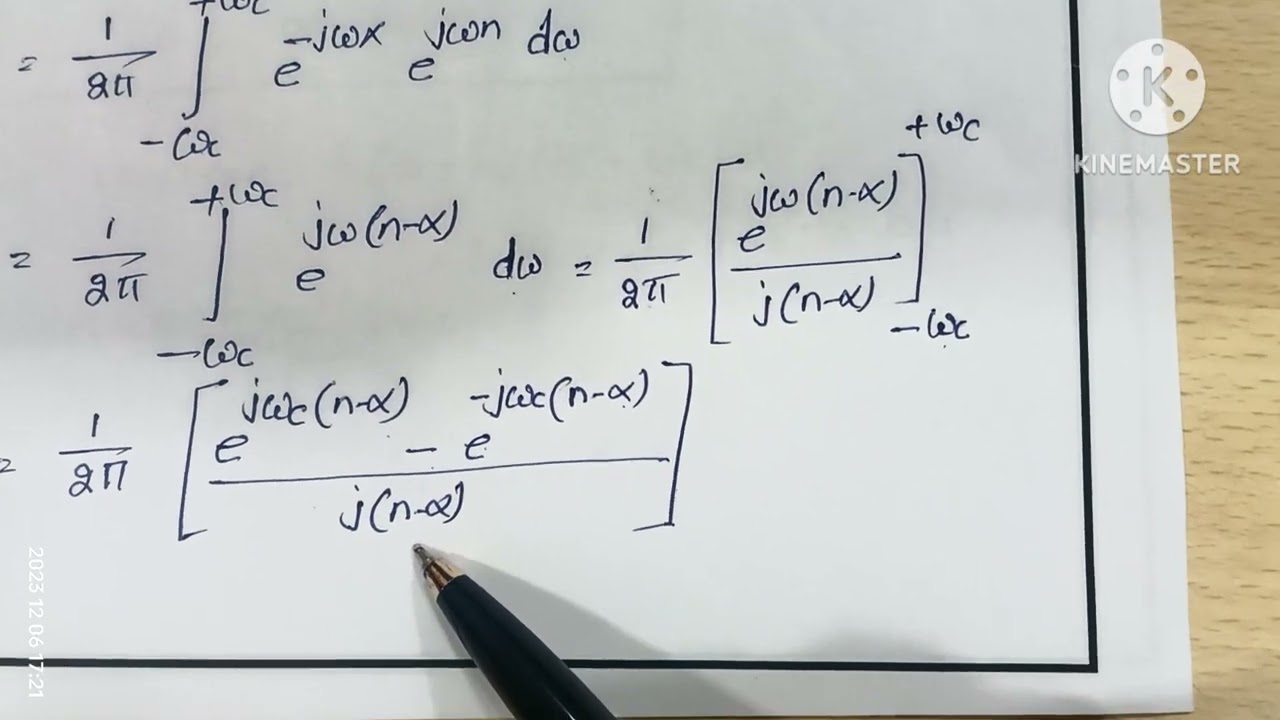 +ωc
= 1/2π ∫ e^-jωα e^jωn dω
-ωc
+ωc
= 1/2π ∫ e^jω(n-α) dω = 1/2π [ e^jω(n-α) / j(n-α) ] +ωc -ωc
-ωc
= 1/2π [ e^jωc(n-α) - e^-jωc(n-α) / j(n-α) ]
K
KINEMASTER
2023 12 06 17:21